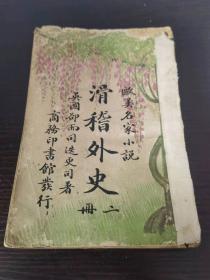 歐美名家小說
滑稽外史
二冊
英國卻而司迭更司著
商務印書館發行